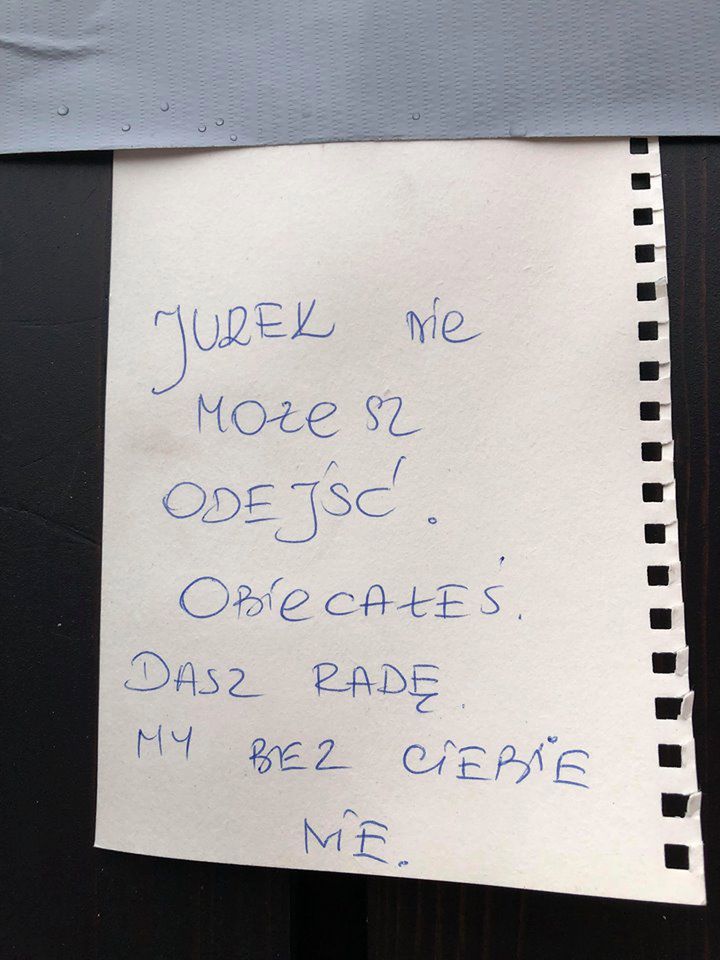 JUREK nie
MOżesz
ODEJŚĆ.
OBieCAŁEŚ.
DASZ RADĘ.
MY BEZ CiEBiE
NiE.